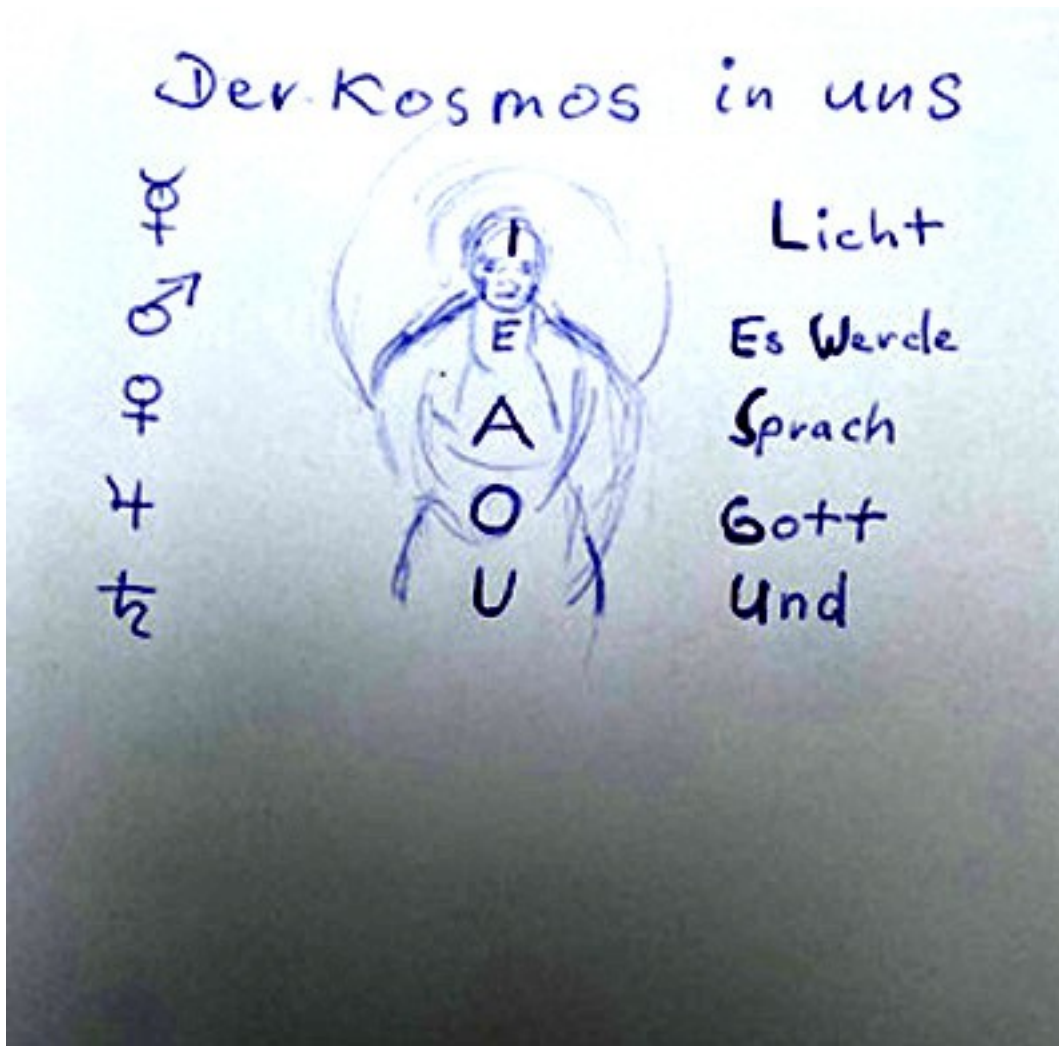 Der Kosmos in uns
☿ I Licht
♂ E Es Werde
♀ A Sprach
♃ O Gott
♄ U Und